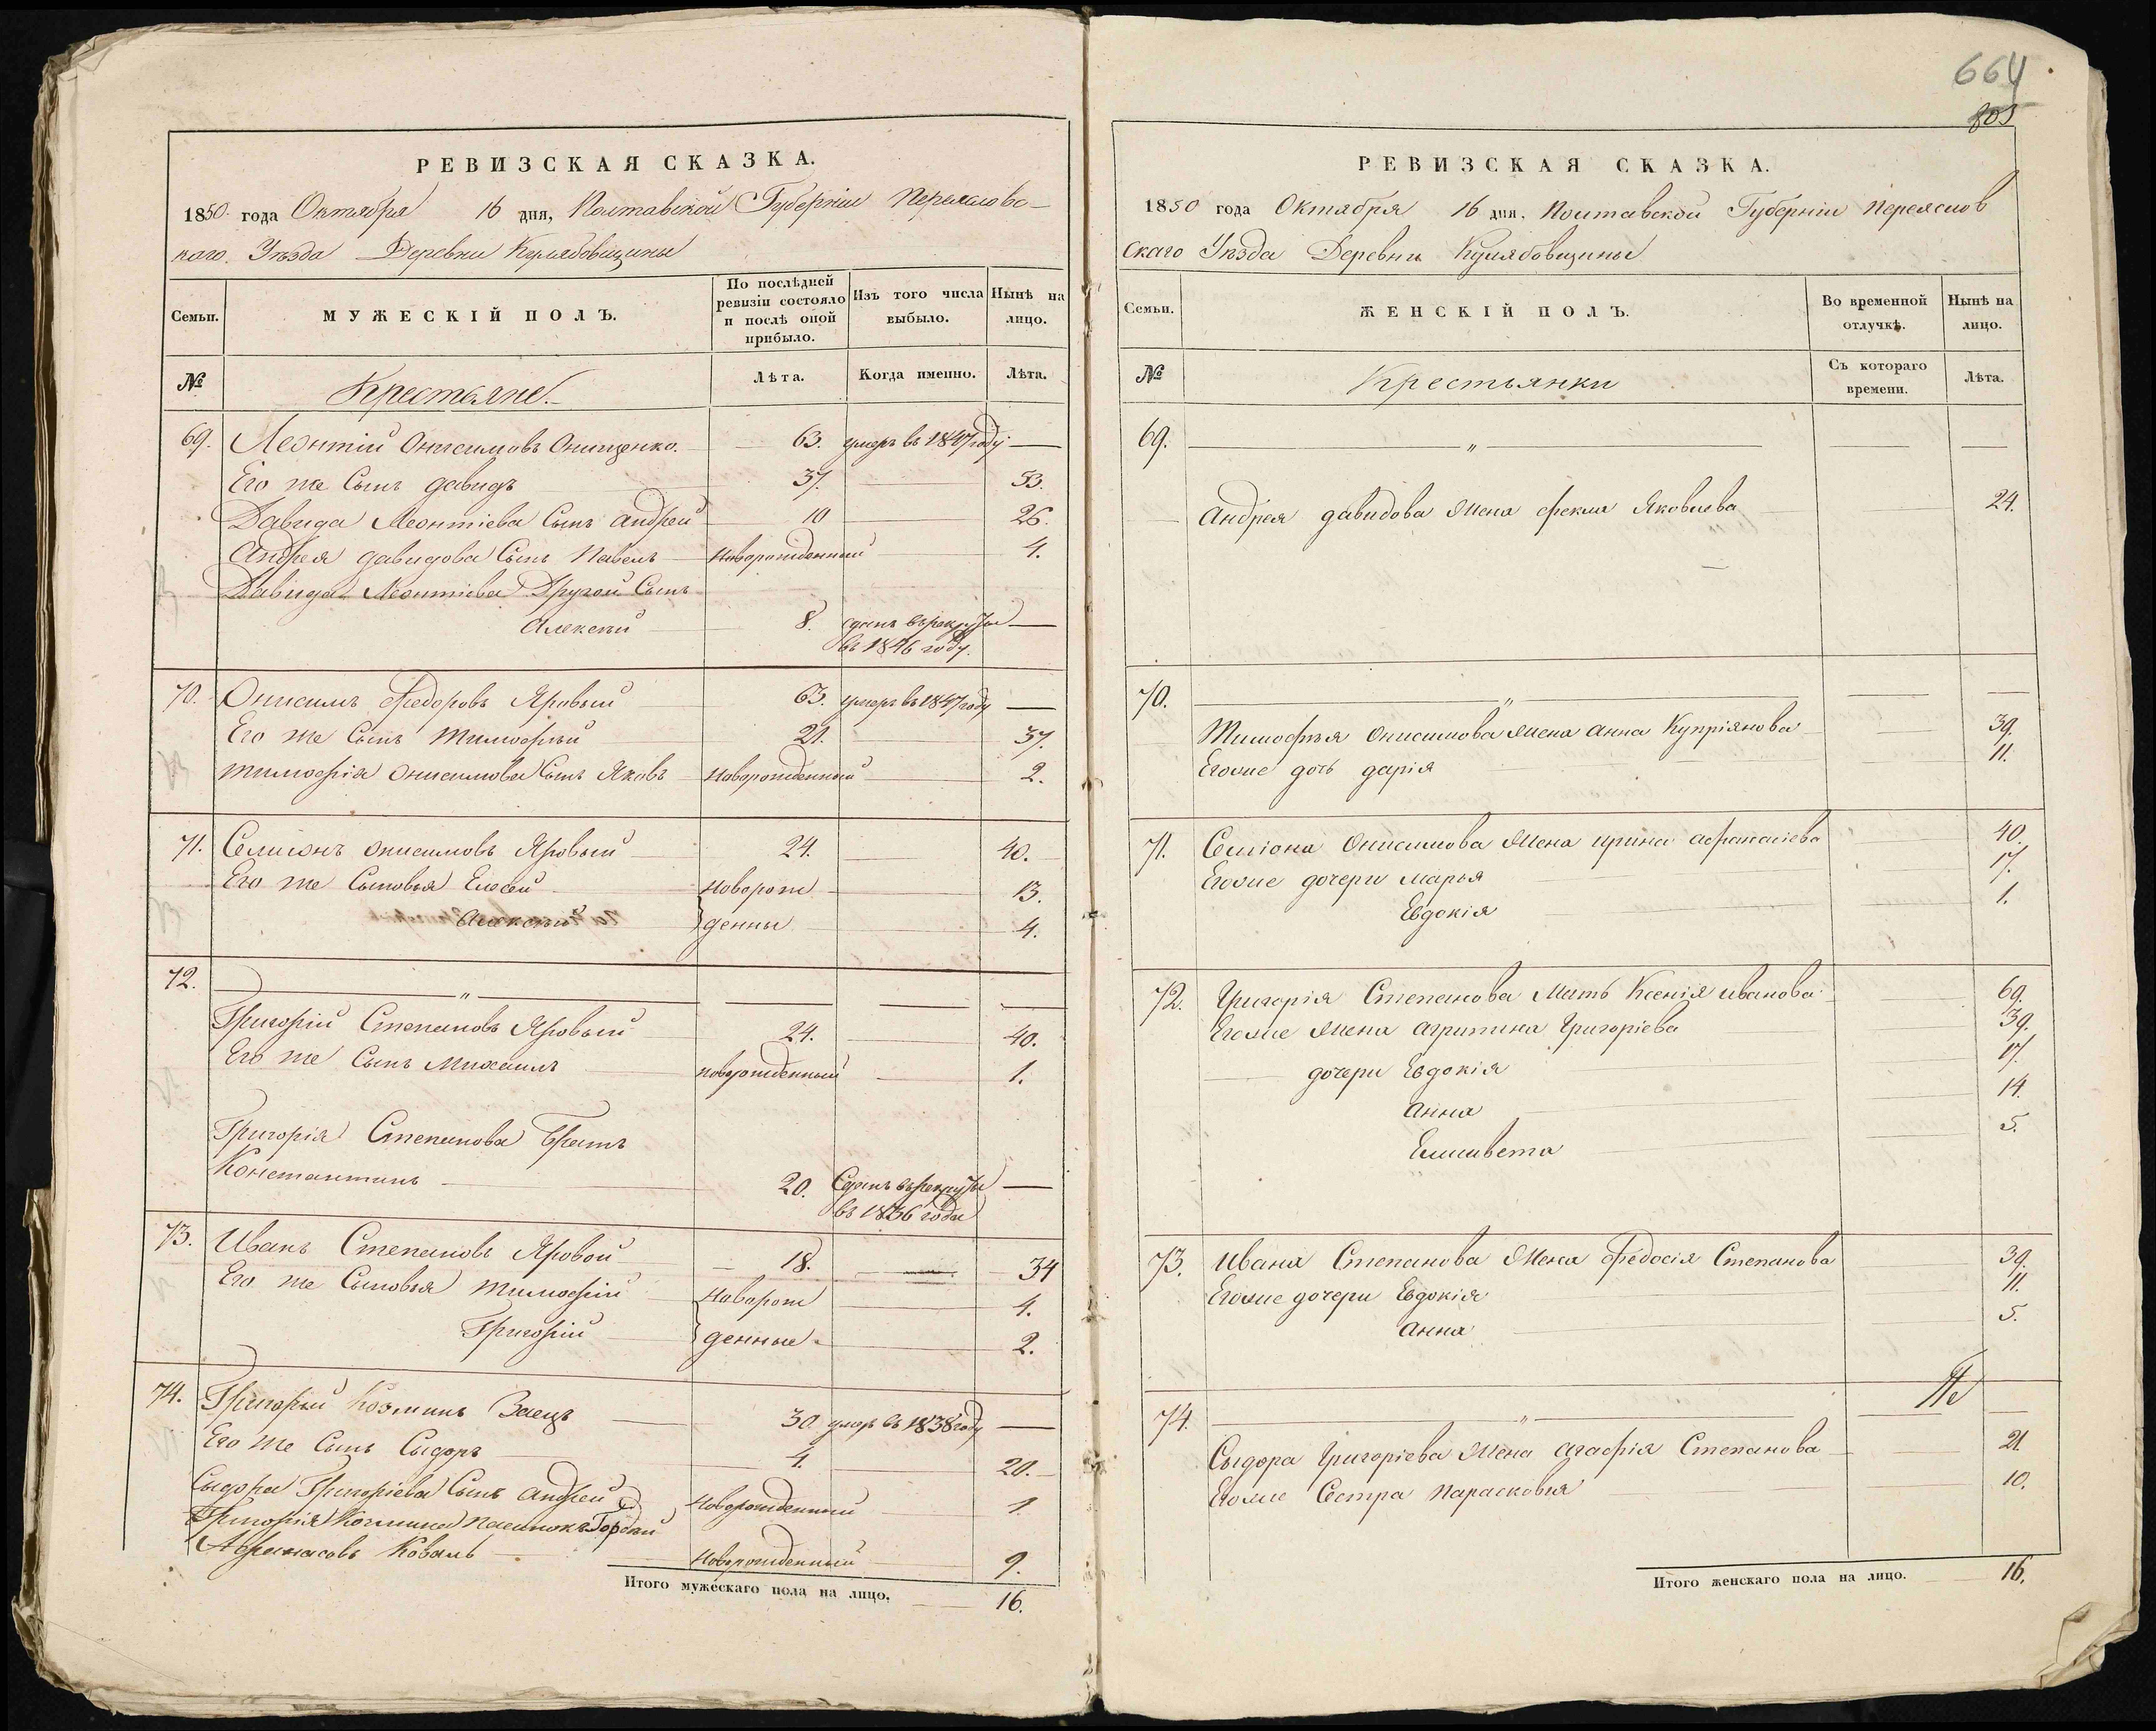 РЕВИЗСКАЯ СКАЗКА.
1850 года Октября 16 дня, Полтавской Губерніи Переясловс-
каго Уѣзда Деревни Кулябовщины
Семьи.
МУЖЕСКІЙ ПОЛЪ.
По послѣдней ревизіи состояло и послѣ оной прибыло.
Изъ того числа выбыло.
Нынѣ на лицо.
№
Крестьяне.
Лѣта.
Когда именно.
Лѣта.
69. Леонтій Онисимовъ Онищенко. 63. умеръ въ 1847 году
Его же Сынъ давидъ 37. 53.
Давида Леонтіева Сынъ андрей 10 26.
Андрея давидова Сынъ Павелъ Новорожденный 4.
Давида Леонтіева Другой Сынъ
Алексѣй 8. сданъ въ рекруты
въ 1846 году.
70. Онисимъ Федоровъ Яровый 63. умеръ въ 1847 году
Его же Сынъ Тимофѣй 21. 37.
Тимофія Онисимова Сынъ Яковъ Новорожденный 2.
71. Семіонъ Онисимовъ Яровый 24. 40.
Его же Сыновья Елисей Новорож 13.
Алексѣй денны 4.
72. „
Григорій Степановъ Яровый 24. 40.
Его же Сынъ Михаилъ новорожденный 1.
Григорія Степанова Братъ
Константинъ 20. Сданъ въ рекруты
въ 1836 годе
73. Иванъ Степановъ Яровой 18. 34
Его же Сыновья Тимофій Новорож 4.
Григорій денные 2.
74. Григорій Козминъ Заецъ 30 умеръ въ 1838 году
Его же Сынъ Сыдоръ 4. 20.
Сыдора Григоріева Сынъ андрей Новорожденный 1.
Григорія Козмина Пасинокъ Гордѣй
Афанасовъ Коваль Новорожденный 9.
Итого мужескаго пола на лицо. 16.
664
803
РЕВИЗСКАЯ СКАЗКА.
1850 года Октября 16 дня, Полтавской Губерніи Переяслов
скаго Уѣзда Деревнѣ Кулябовщины
Семьи.
ЖЕНСКІЙ ПОЛЪ.
Во временной отлучкѣ.
Нынѣ на лицо.
№
Крестьянки
Съ котораго времени.
Лѣта.
69. „
Андрея давидова Жена фекла Яковлева 24.
70. „
Тимофѣя Онисимова Жена анна Купріянова 39.
Егоже дочь дарія 11.
71. Семіона Онисимова Жена ирина афанасіева 40.
Егоже дочери Марья 17.
Евдокія 1.
72. Григорія Степанова Мать Ксенія иванова 69.
Егоже Жена агрипина Григоріева 39.
дочери Евдокія 17.
анна 14.
Елисавета 5.
73. Ивана Степанова Жена Федосія Степанова 39.
Егоже дочери Евдокія 11.
анна 5.
74. „
Сыдора Григоріева Жена агафія Степанова 21.
Егоже Сестра Парасковья 10.
Итого женскаго пола на лицо. 16.